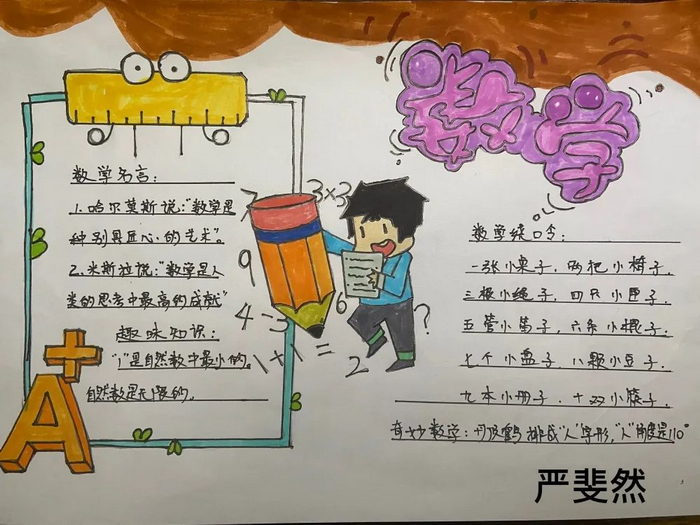 数学
数学名言：
1.哈尔莫斯说："数学是
种别具匠心的艺术"。
2.米斯拉说："数学是人
类的思考中最高的成就"
趣味知识：
"1"是自然数中最小的。
自然数是无限的。
A+
7
3×3
9
4-3
6
1+1=
2
?
数学绕口令：
一张小桌子，两把小椅子，
三根小绳子，四只小匣子，
五管小笛子，六条小棍子，
七个小盘子，八颗小豆子，
九本小册子，十双小筷子，
奇妙数学：丹顶鹤排成"人"字形，"人"角度是110°
严斐然